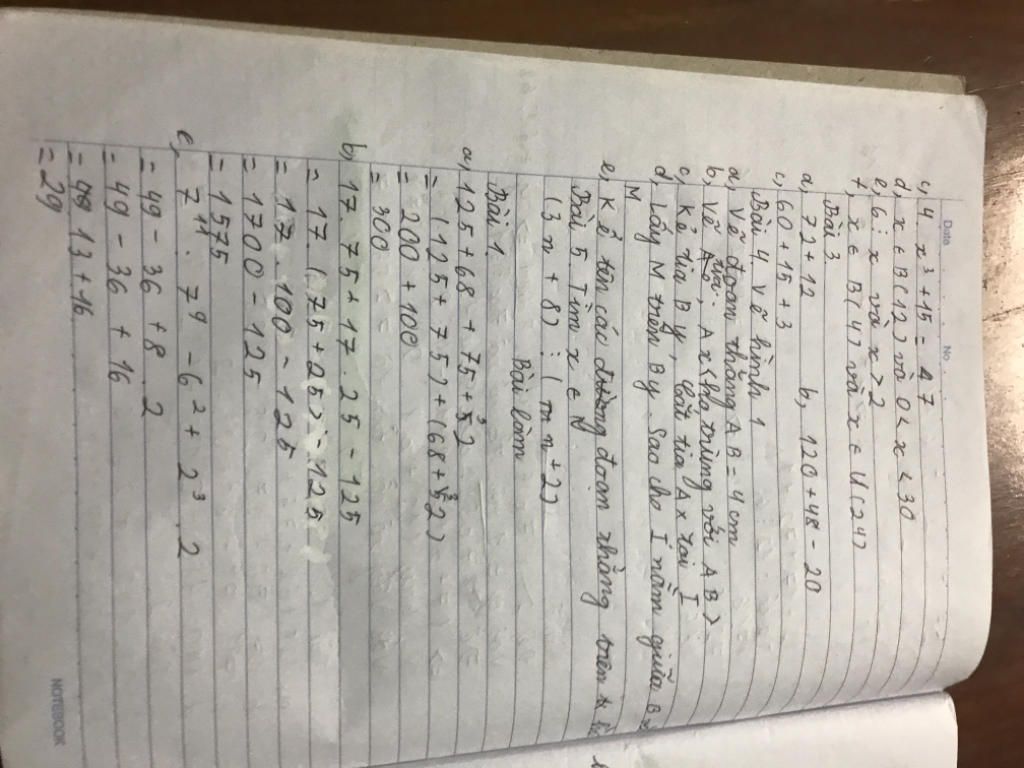 Date No
c, 4. x³ + 15 = 47
d, x ∈ B(12) và 0 < x < 30
e, 6 ⋮ x và x > 2
f, x ∈ B(4) và x ∈ Ư(24)
Bài 3
a, 72 + 12 b, 120 + 48 - 20
c, 60 + 15 + 3
Bài 4. Vẽ hình 1
a, Vẽ đoạn thẳng AB = 4cm
b, Vẽ tia Ax (ko trùng với AB)
c, Kẻ tia By, cắt tia Ax tại I
d, Lấy M trên By sao cho I nằm giữa B và
M
e, Kể tên các đường đoạn thẳng trên
Bài 5 Tìm x ∈ N
(3n + 8) ⋮ (n + 2)
Bài làm
Bài 1.
a, 125 + 68 + 75 + 32
= (125 + 75) + (68 + 32)
= 200 + 100
= 300
b, 17. 75 + 17. 25 - 125
= 17. (75 + 25) - 125
= 17. 100 - 125
= 1700 - 125
= 1575
c, 7¹¹ : 7⁹ - 6² + 2³. 2
= 49 - 36 + 8. 2
= 49 - 36 + 16
= 13 + 16
= 29
NOTEBOOK